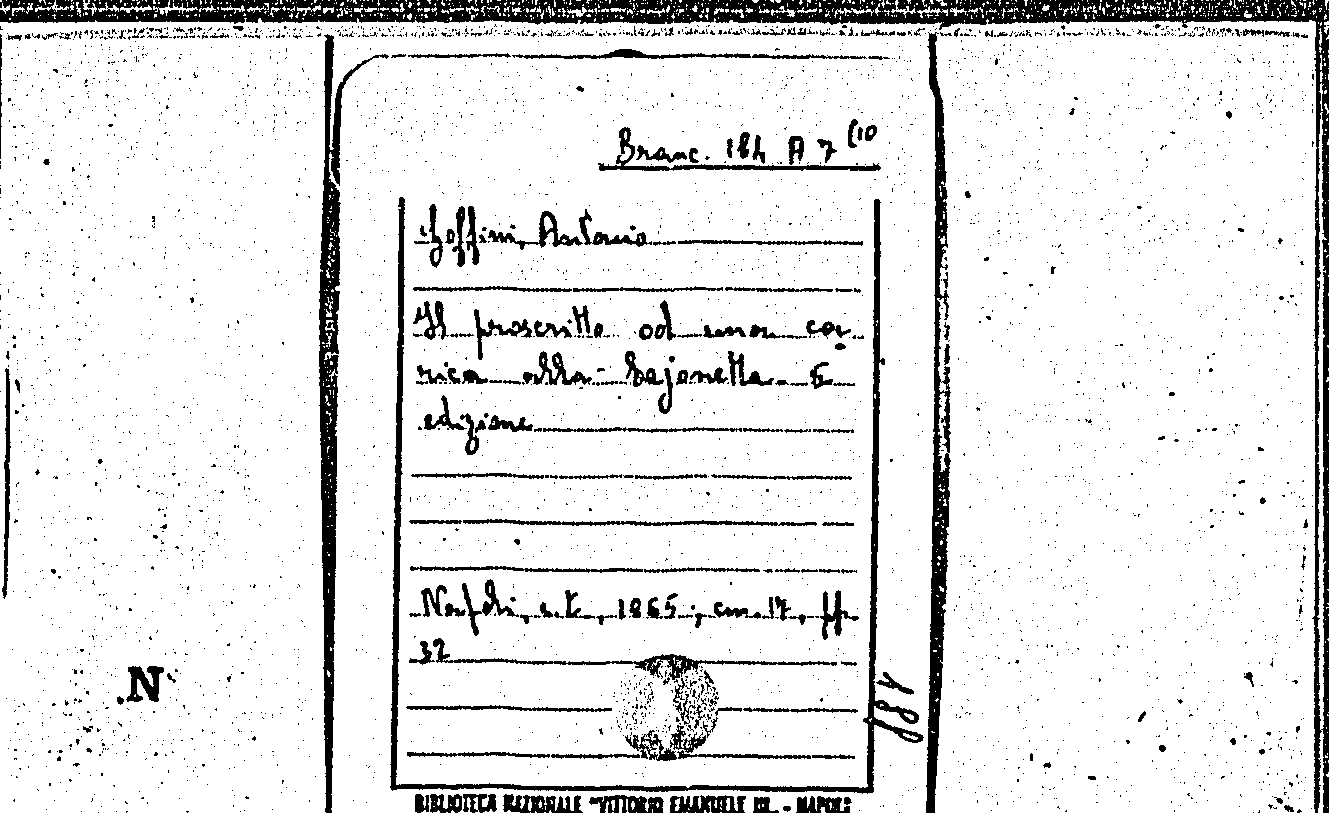 Branc. 16h A 7 (10
Antonio
Il proscritto od una ca-
rica alla bajonetta. 5
edizione
Napoli, s.t., 1865; cm. 17, pp.
32
188
N
BIBLIOTECA NAZIONALE "VITTORIO EMANUELE III. - NAPOLI